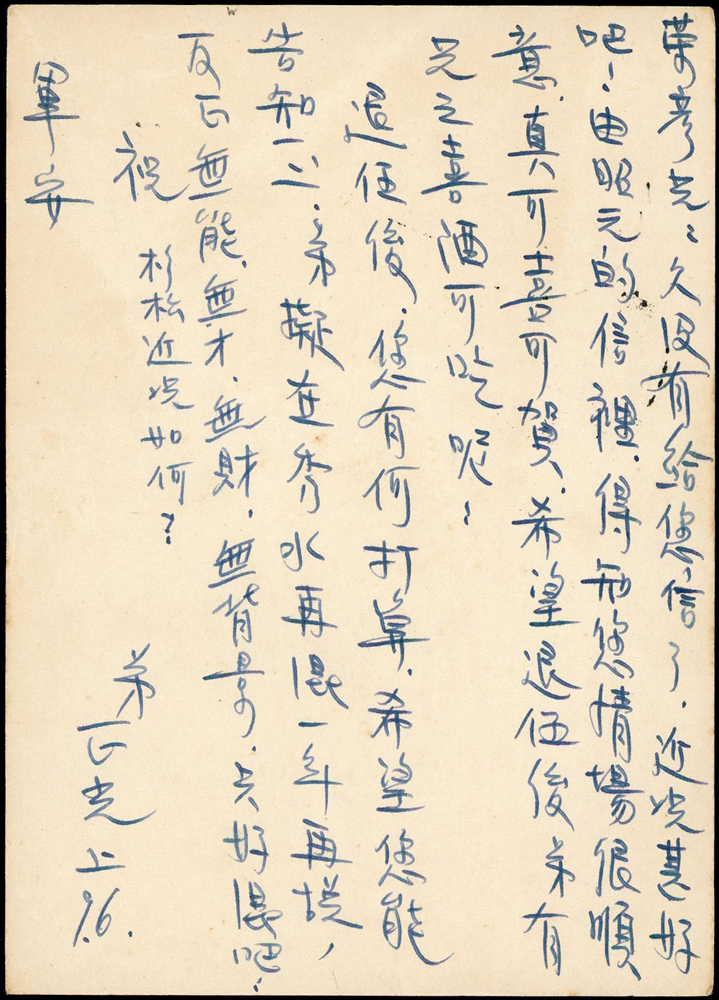 榮彥兄:久沒有給您信了.近況甚好
吧!由昭元的信裡.得知您情場很順
意.真可喜可賀.希望退伍後弟有
兄之喜酒可吃呢!
退伍後.您有何打算.希望您能
告知一二.弟擬在秀水再混一年再說,
反正無能.無才.無財.無背景.只好混吧!
祝
杉松近況如何?
軍安
弟
正光上
9.6.